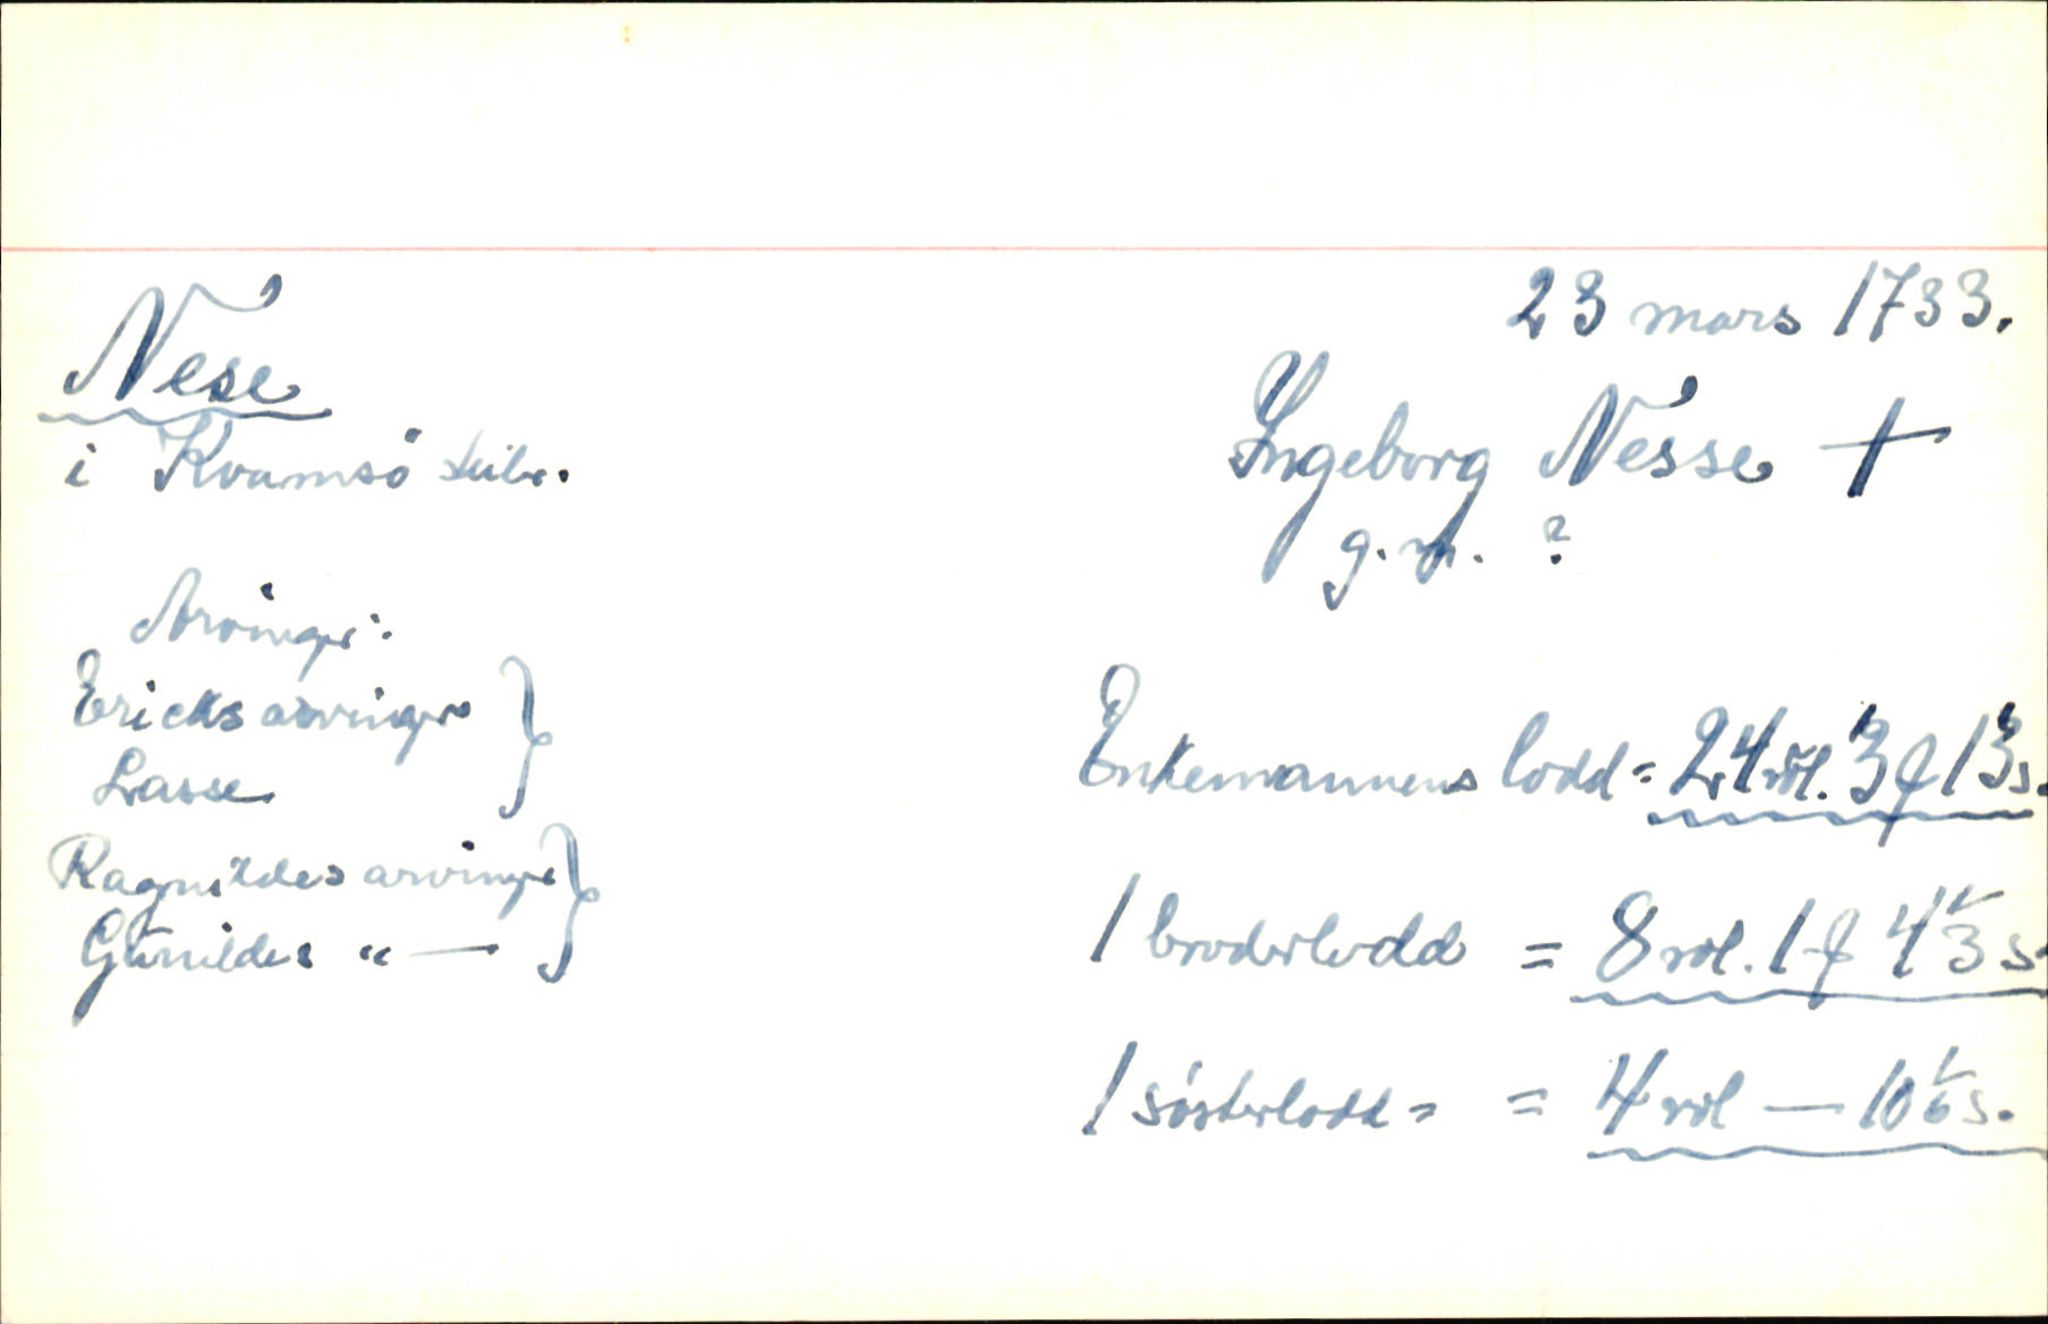 23 mars 1733.
Nese
i Kvamsö skibr.
Ingeborg Nesse +
g. m. ?
Arvinger:
Ericks arvinger }
Lasse
Ragnildes arvinger }
Gunildes " —
Enkemannens lodd = 24 rdl. 3 f 13 s.
1 broderlodd = 8 rdl. 1 f 4 1/3 s.
1 sösterlodd = = 4 rdl — 10 1/6 s.